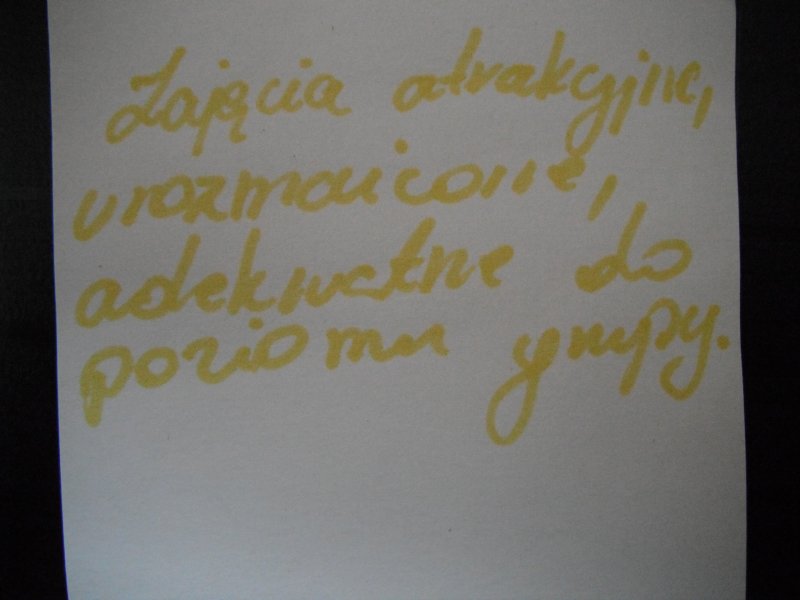 Zajęcia atrakcyjne,
urozmaicone,
adekwatne do
poziomu grupy.